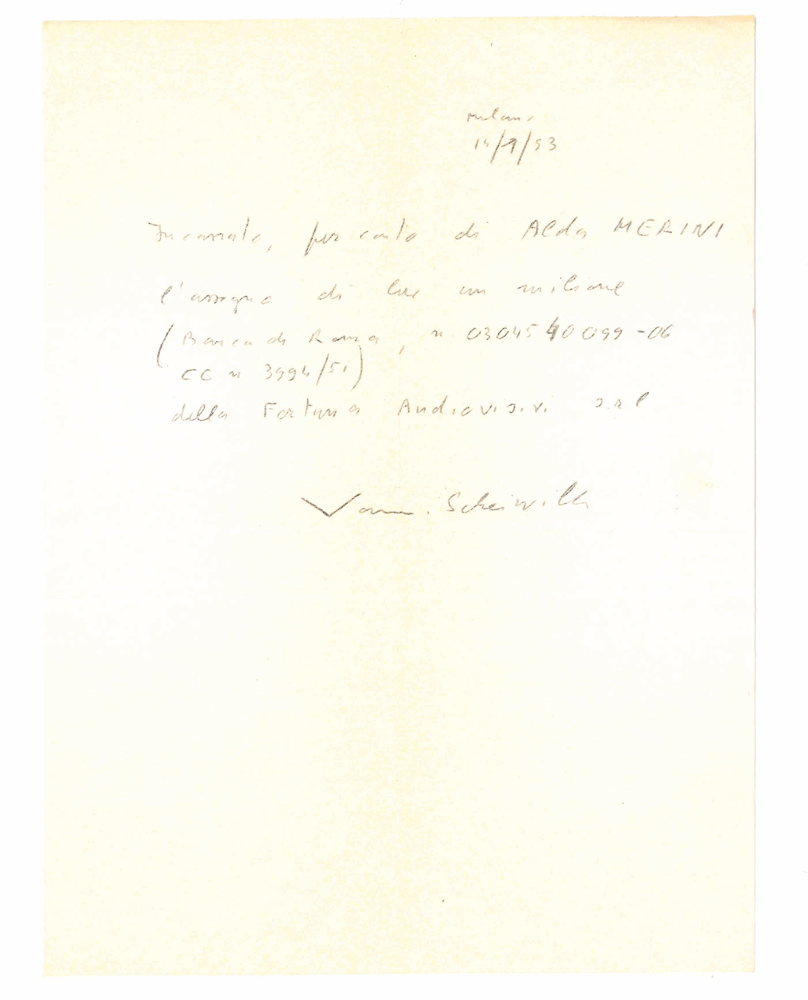 Milano
14/9/93
Incassato, per conto di Alda MERINI
l'assegno di lire un milione
(Banca di Roma, n 0304540099-06
CC n 3994/51)
della Fortuna Audiovisivi s.r.l
Vanni Scheiwiller